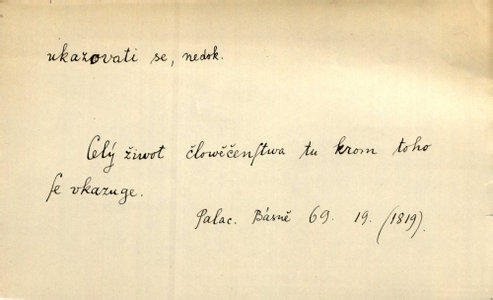 ukazovati se, nedok.
Celý život člowěčenſtwa tu krom toho
ſe vkazuge.
Palac. Básně 69. 19. (1819).